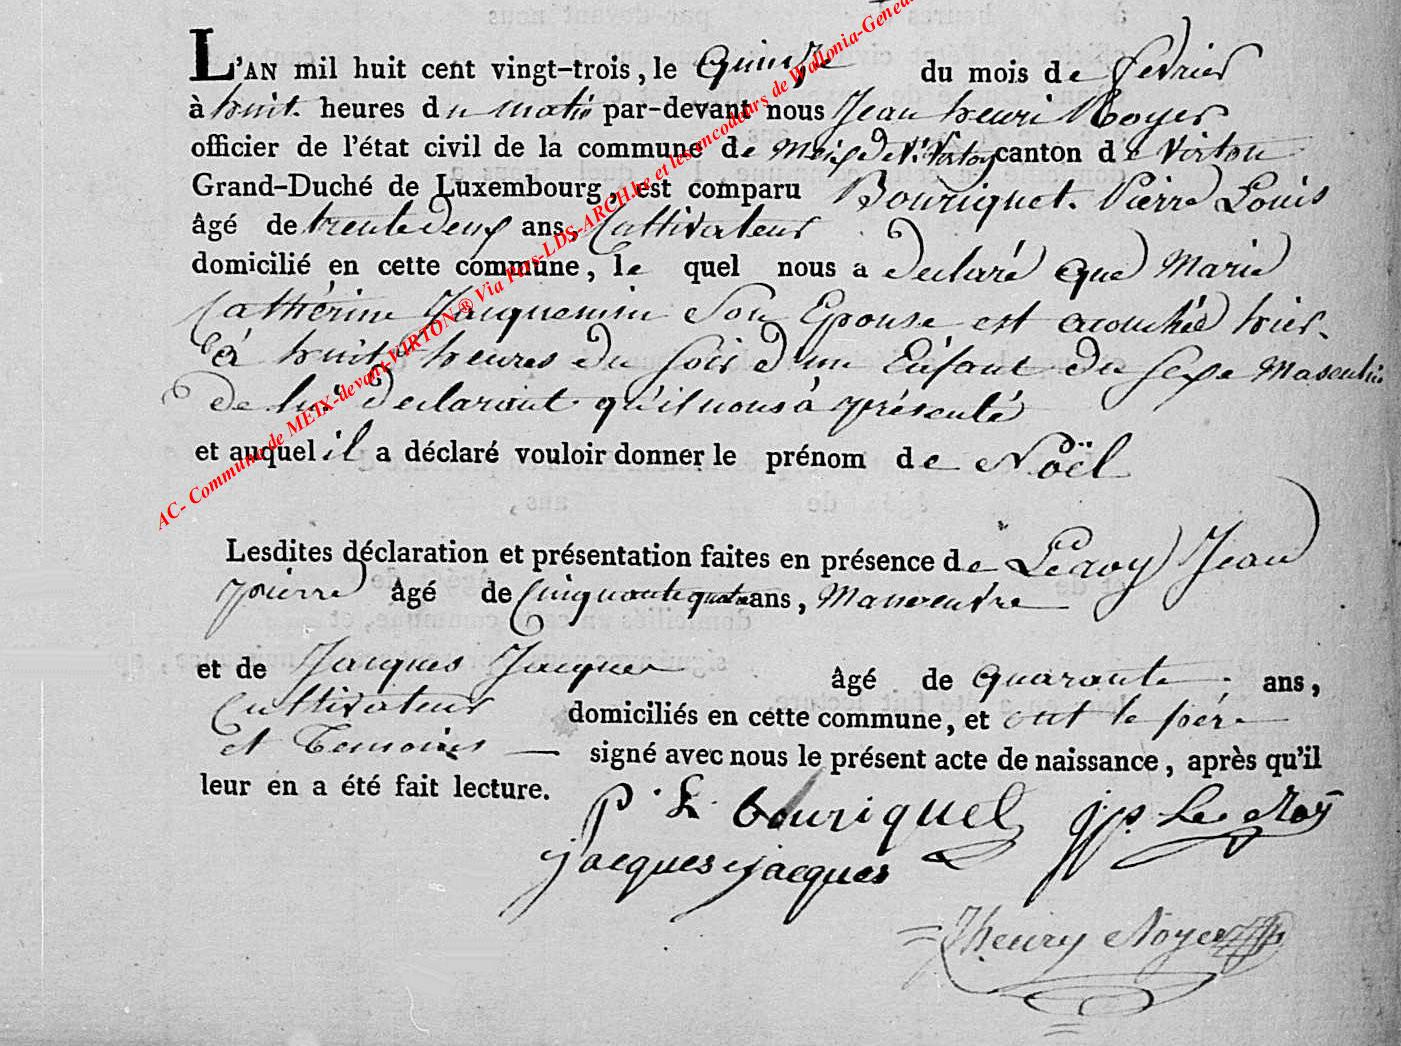 L'AN mil huit cent vingt-trois, le Quinze du mois de fevrier
à huit heures du matin par-devant nous Jean henri Noyer
officier de l'état civil de la commune de Meix devt Virton canton de Virton
Grand-Duché de Luxembourg, est comparu Bouriquet Pierre Louis
âgé de trente deux ans, Cultivateur
domicilié en cette commune, le quel nous a declaré que Marie
Cathérine Jacquemin Son Epouse est acouchée hier
à huit heures du soir d'un Enfant du sexe Masculin
de lui declarant qu'il nous à présenté
et auquel il a déclaré vouloir donner le prénom de Noël
Lesdites déclaration et présentation faites en présence de Leroy Jean
pierre âgé de Cinquante quatre ans, Manoeuvre
et de Jacques Jacques âgé de quarante ans,
Cultivateur domiciliés en cette commune, et ont le père
et Temoins signé avec nous le présent acte de naissance, après qu'il
leur en a été fait lecture.
P. L. bouriquet jp. Le Roy
jacques jacques
Jhenry Noyer
AC- Commune de MEIX-devant-VIRTON ® Via Pers-LDS-ARCH.be et les encodeurs de Wallonia-Genea